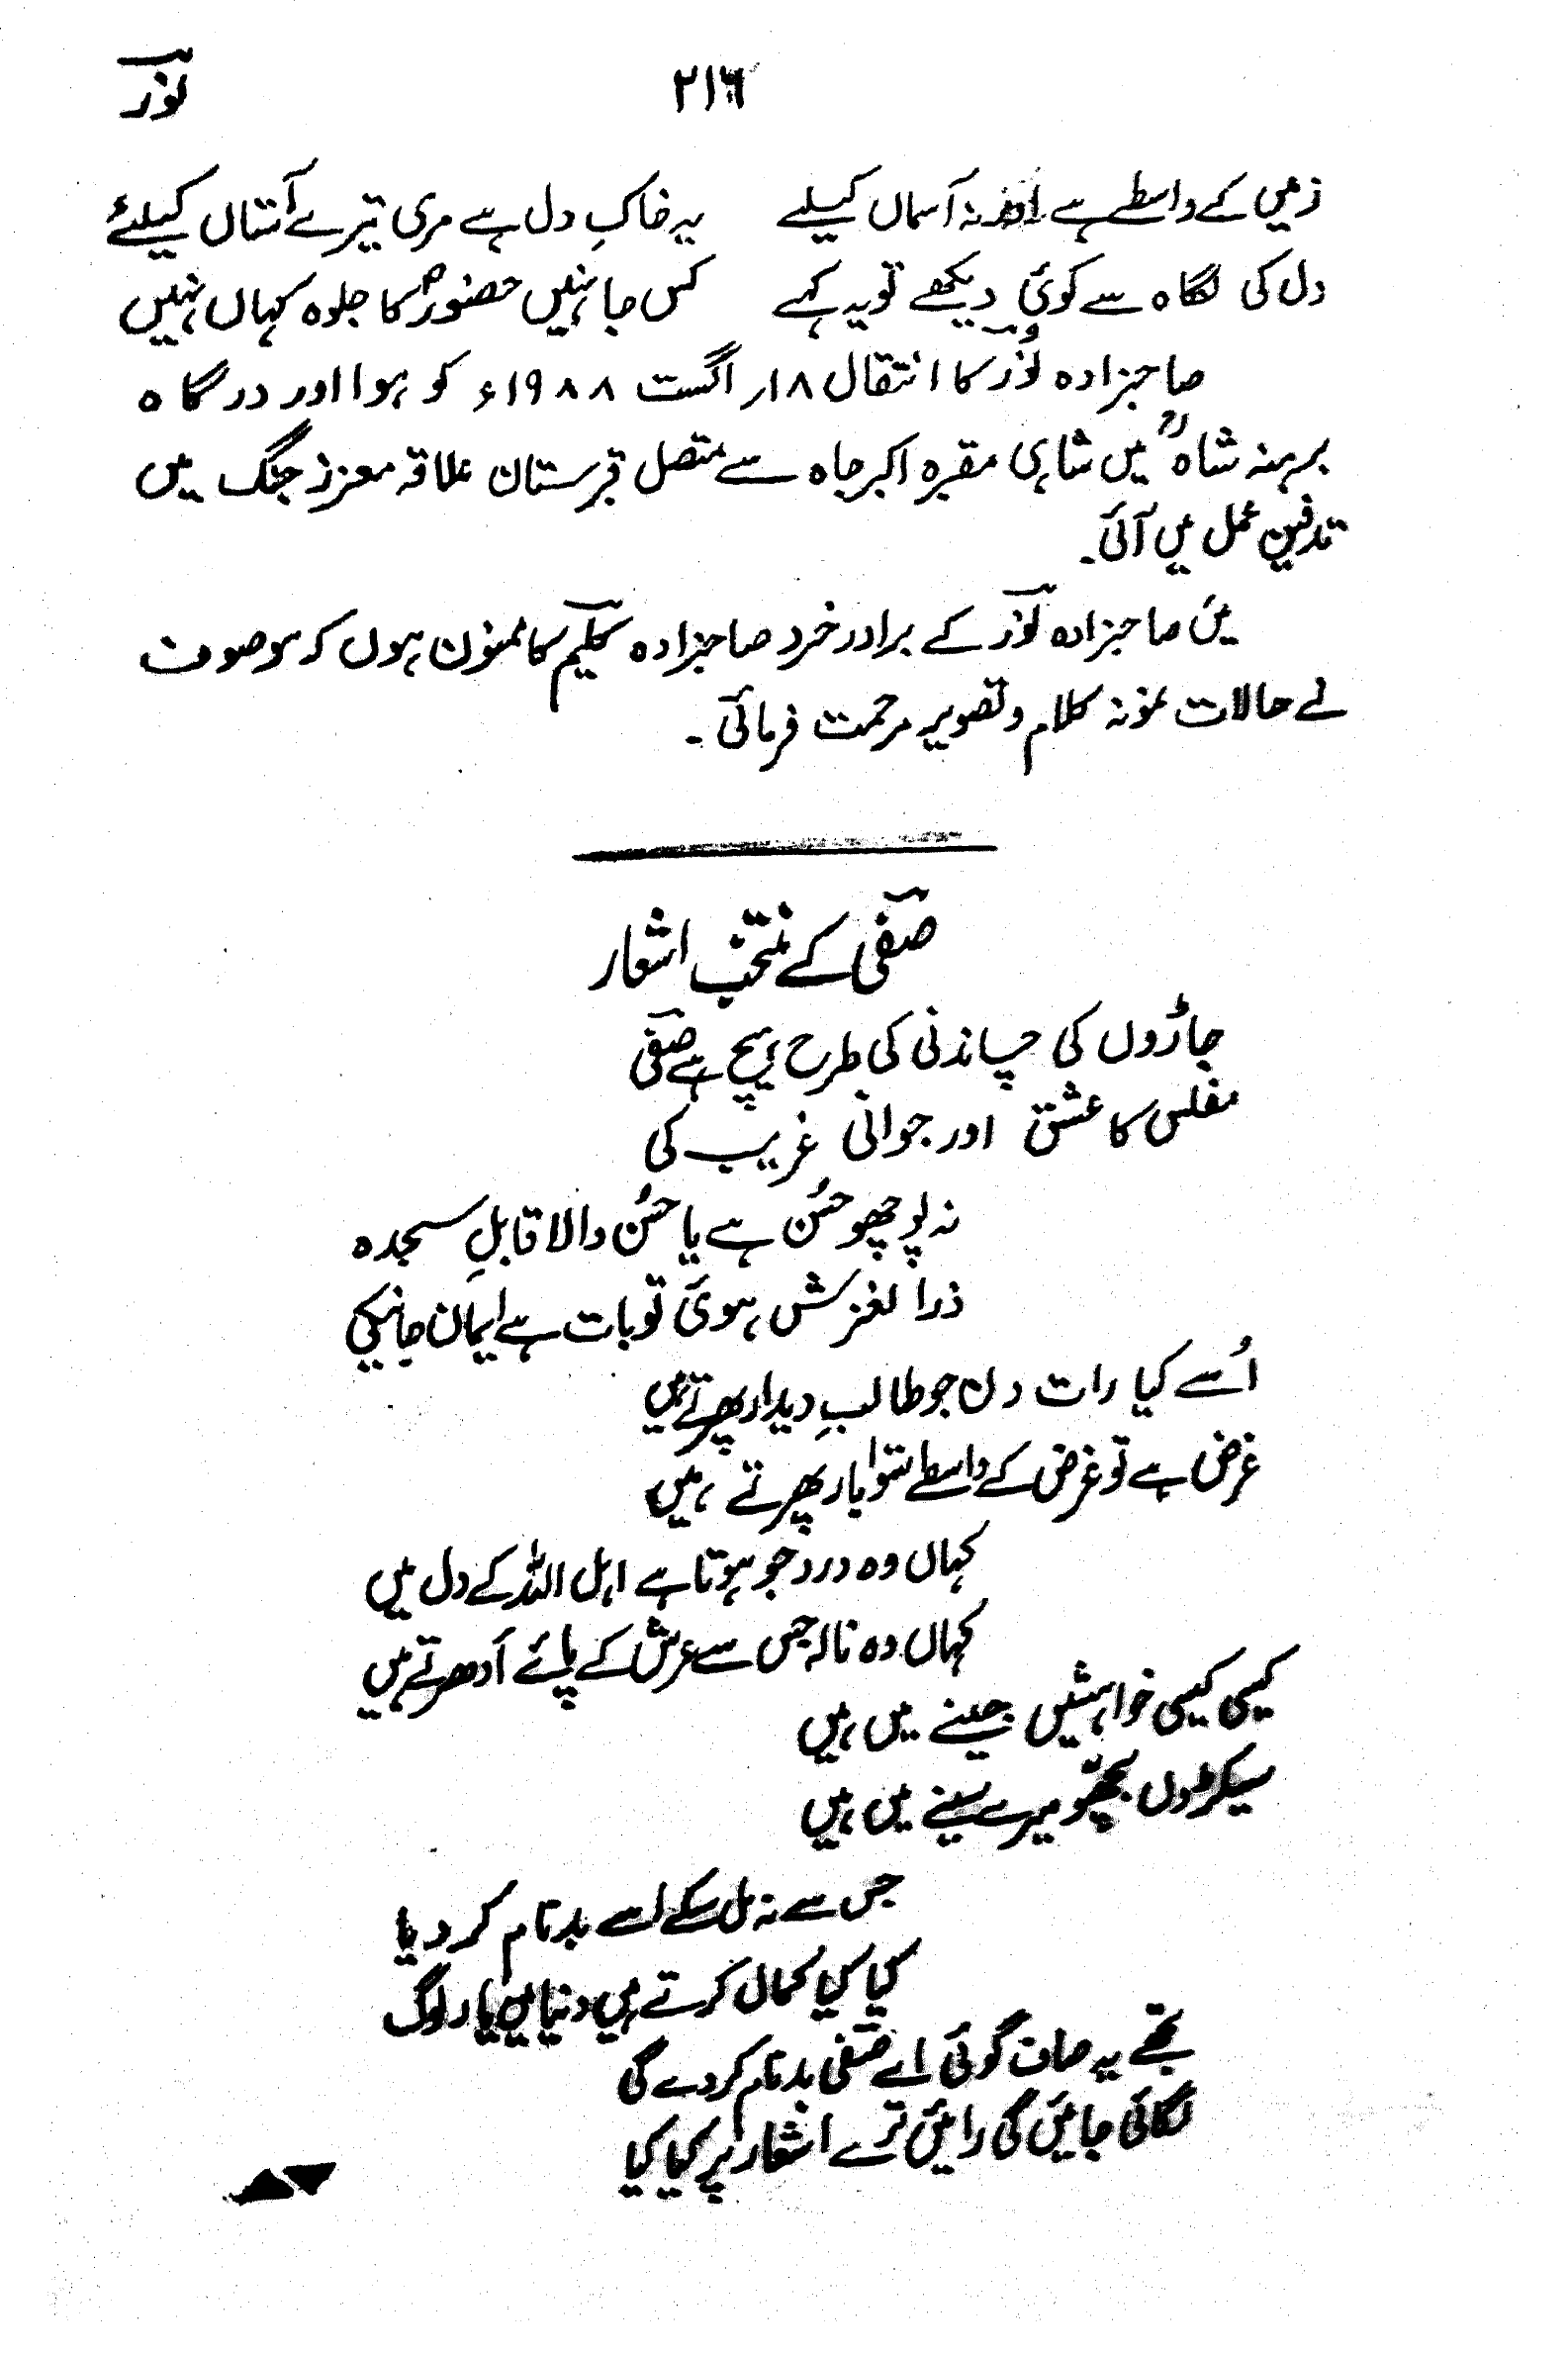 ۲۱۶
نورؔ
زمیں کے واسطے ہے اور نہ آسماں کیلے یہ خاکِ دل ہے مری تیرے آستاں کیلئے
دل کی نگاہ سے کوئی دیکھے تو یہ کہے کس جا نہیں حضورؐ کا جلوہ کہاں نہیں
صاحبزادہ نورؔ کا انتقال ۱۸؍ اگست ۱۹۸۸ء کو ہوا اور درگاہ
برہنہ شاہؒ میں شاہی مقبرہ اکبر جاہ سے متصل قبرستان علاقہ معزز جنگ میں
تدفین عمل میں آئی۔
میں صاحبزادہ نورؔ کے برادر خرد صاحبزادہ کلیمؔ کا ممنون ہوں کہ موصوف
نے حالات نمونہ کلام و تصویر مرحمت فرمائی۔
صفیؔ کے منتخب اشعار
جاڑوں کی چاندنی کی طرح ہیچ ہے صفیؔ
مفلس کا عشق اور جوانی غریب کی
نہ پوچھو حُسن ہے یا حُسن والا قابلِ سجدہ
ذرا لغزش ہوئی تو بات ہے ایمان جانیکی
اُسے کیا رات دن جو طالبِ دیدار پھرتے ہیں
غرض ہے تو غرض کے واسطے سَو بار پھرتے ہیں
کہاں وہ درد جو ہوتا ہے اہل اللہ کے دل میں
کہاں وہ نالہ جس سے عرش کے پائے اُدھرتے ہیں
کیسی کیسی خواہشیں جینے میں ہیں
سیکڑوں بچھّو میرے سینے میں ہیں
جس سے نہ مل سکے اسے بدنام کر دیا
کیا کیا کمال کرتے ہیں دنیا میں یار لوگ
تجھے یہ صاف گوئی اے صفیؔ بدنام کر دے گی
لگائی جائیں گی رائیں ترے اشعار پر کیا کیا